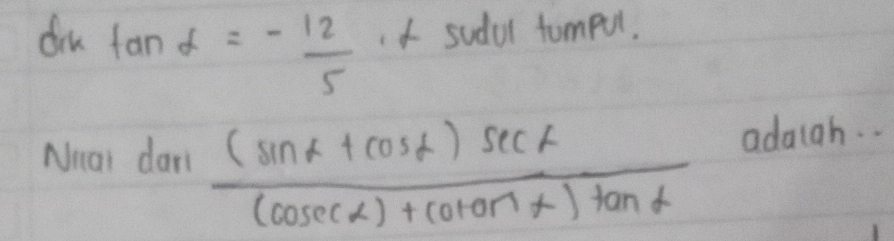 dik tan α = - 12/5 . α sudut tumpul.
Nilai dari (sin α + cos α) sec α / (cosec α) + cotan α) tan α adalah..